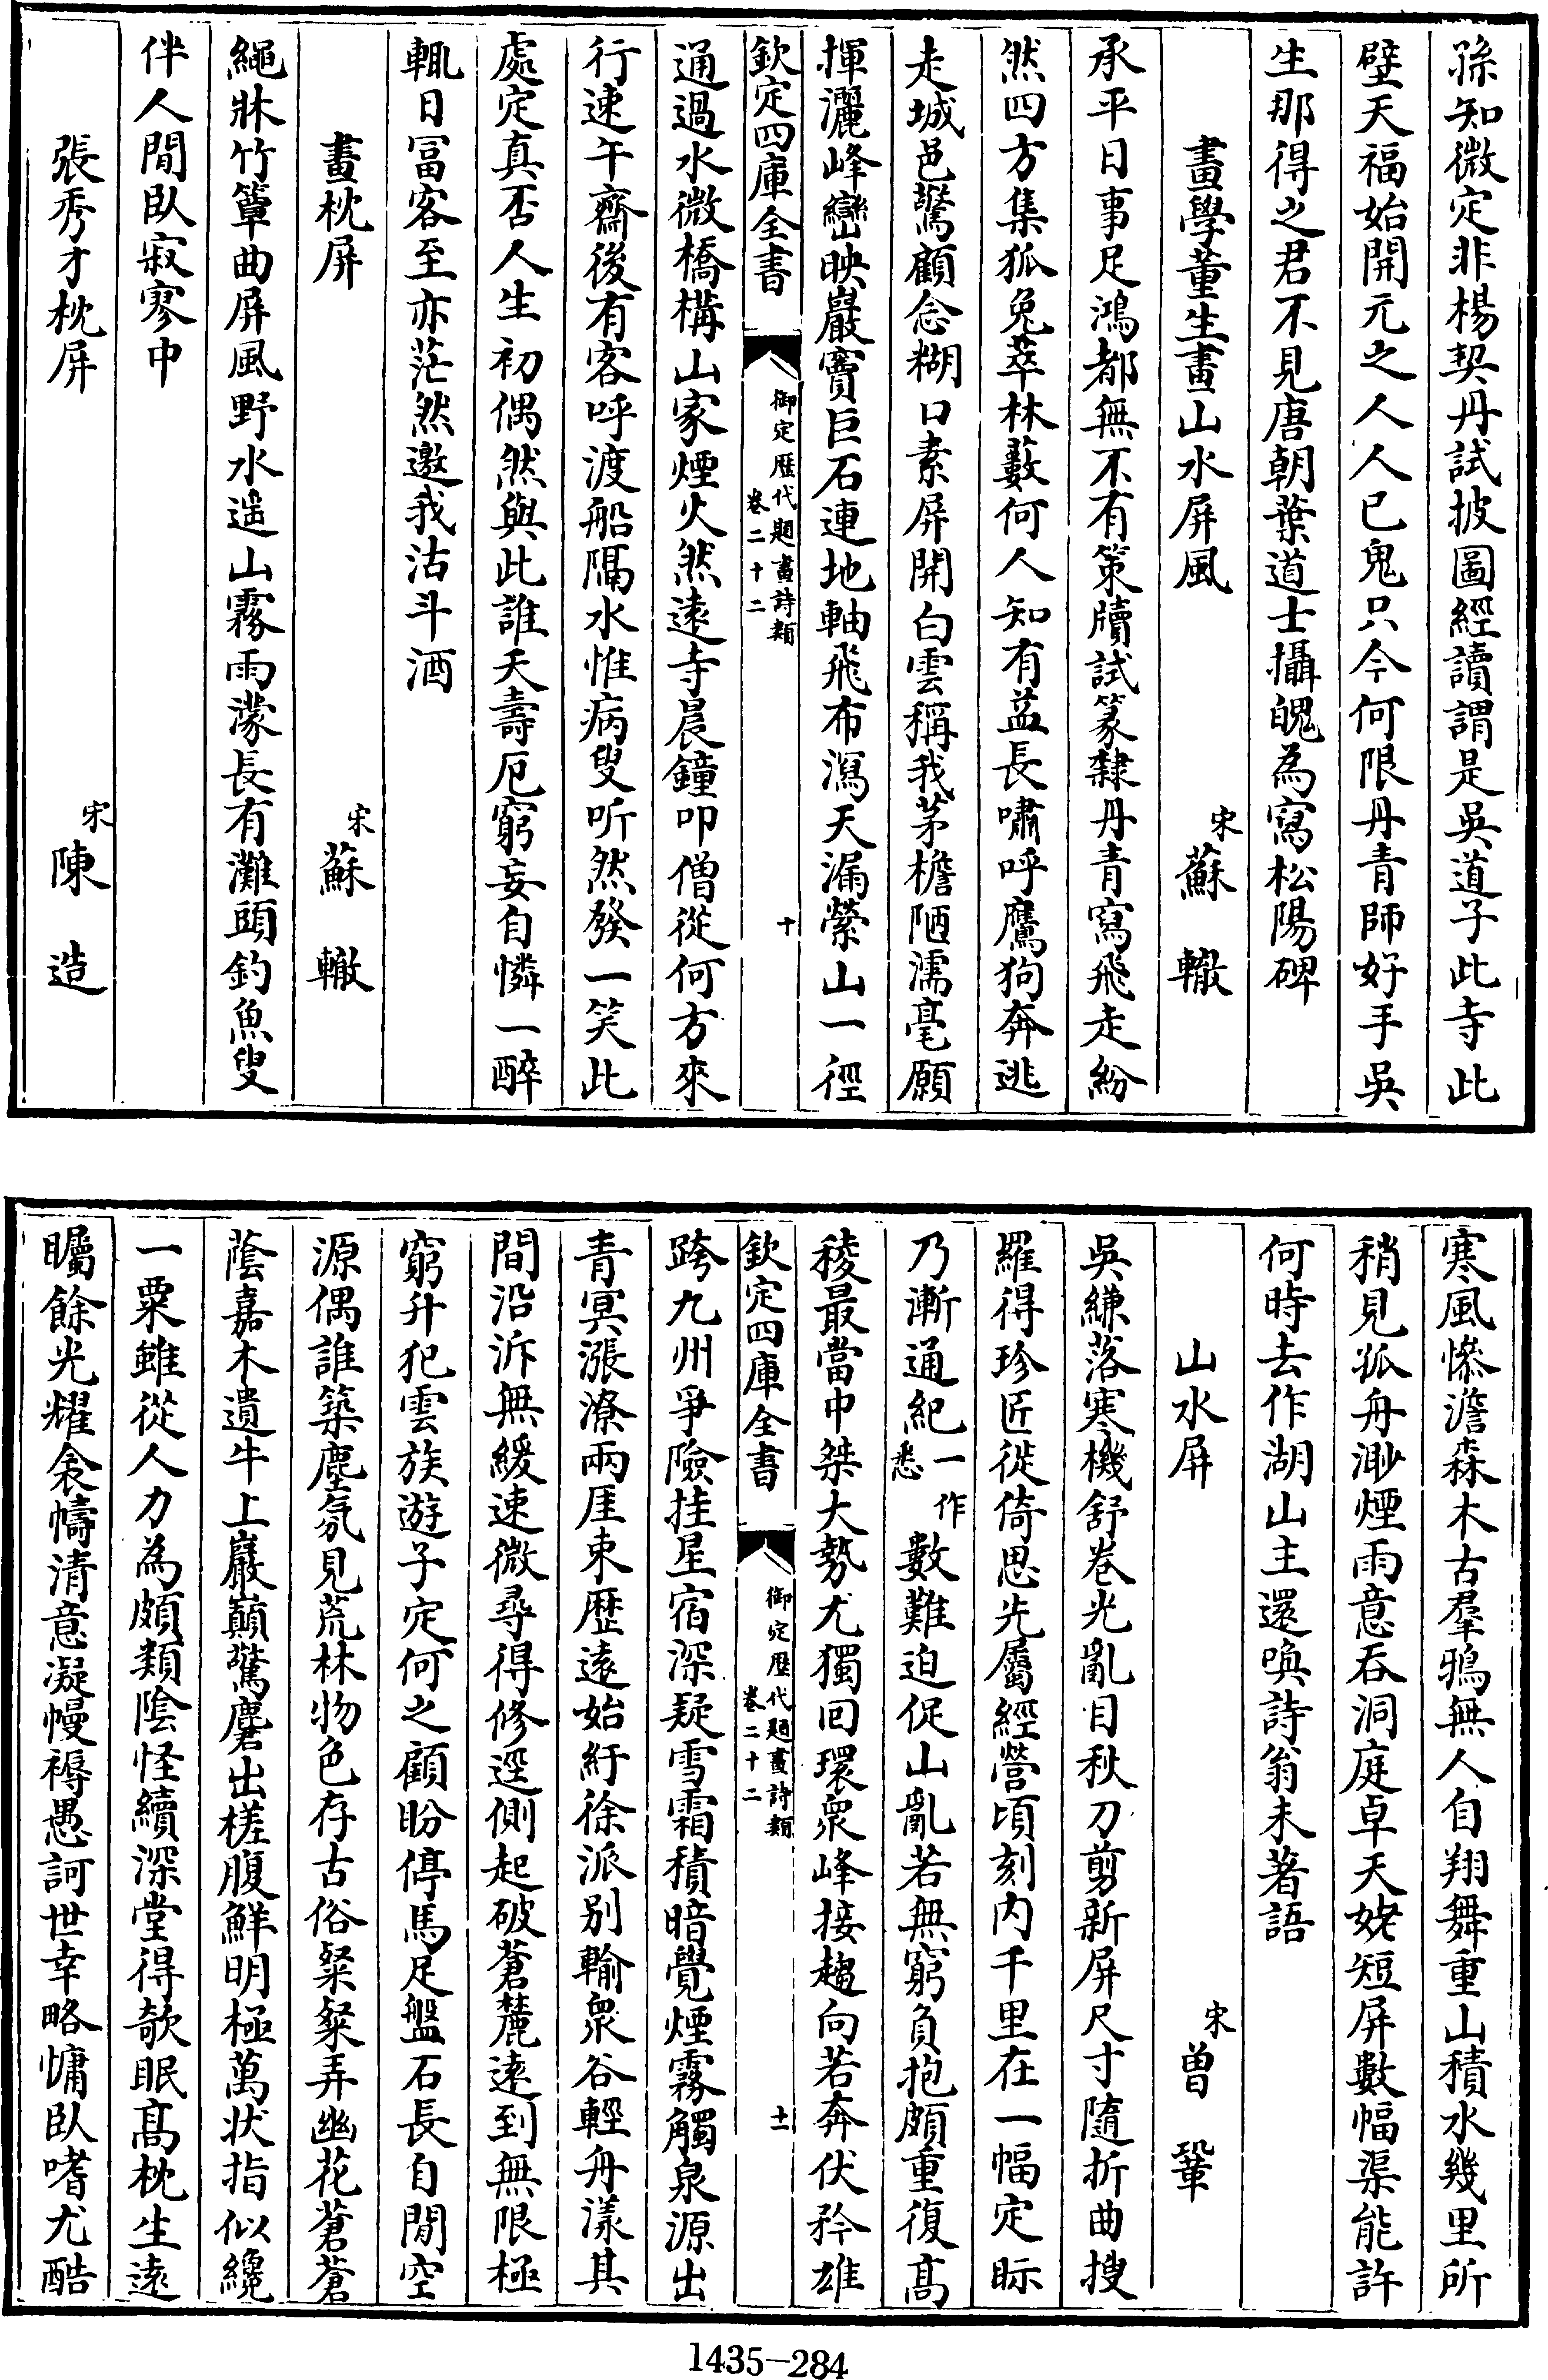 孫知微定非楊契丹試披圖經讀謂是吳道子此寺此
壁天福始開元之人人已鬼只今何限丹青師好手吳
生那得之君不見唐朝葉道士攝魄為寫松陽碑
畫學董生畫山水屏風 宋蘇轍
承平日事足鴻都無不有策牘試篆隸丹青寫飛走紛
然四方集狐兔萃林藪何人知有益長嘯呼鷹狗奔逃
走城邑驚顧念糊口素屏開白雲稱我茅檐陋濡毫願
揮灑峰巒映巖竇巨石連地軸飛布瀉天漏縈山一徑
欽定四庫全書 御定歷代題畫詩類 卷二十二 十
通過水微橋構山家煙火然遠寺晨鐘叩僧從何方來
行速午齋後有客呼渡船隔水惟病叟听然發一笑此
處定真否人生初偶然與此誰夭壽厄窮妄自憐一醉
輒日富客至亦茫然邀我沽斗酒
畫枕屏 宋蘇轍
繩牀竹簟曲屏風野水遥山霧雨濛長有灘頭釣魚叟
伴人閒臥寂寥中
張秀才枕屏 宋陳造
寒風慘澹森木古羣鴉無人自翔舞重山積水幾里所
稍見孤舟渺煙雨意吞洞庭卓天姥短屏數幅渠能許
何時去作湖山主還喚詩翁未著語
山水屏 宋曾鞏
吳縑落寒機舒卷光亂目秋刀剪新屏尺寸隨折曲搜
羅得珍匠徙倚思先屬經營頃刻内千里在一幅定眎
乃漸通紀一作悉數難迫促山亂若無窮負抱頗重復髙
稜最當中桀大勢尤獨回環衆峰接趨向若奔伏矜雄
欽定四庫全書 御定歷代題畫詩類 卷二十二 十一
跨九州爭險挂星宿深疑雪霜積暗覺煙霧觸泉源出
青冥漲潦兩厓束歷遠始紆徐派别輸衆谷輕舟漾其
間沿泝無緩速微尋得修逕側起破蒼麓遠到無限極
窮升犯雲族遊子定何之顧盼停馬足盤石長自閒空
源偶誰築塵氛見荒林物色存古俗粲粲弄幽花蒼蒼
蔭嘉木遺牛上巖巔驚麏出槎腹鮮明極萬状指似纔
一粟雖從人力為頗類陰怪續深堂得欹眠髙枕生遠
矚餘光耀衾幬清意凝幔褥愚訶世幸略慵臥嗜尤酷
1435-284